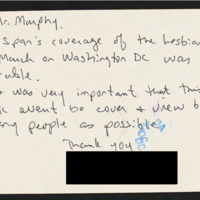 r. Murphy.
span's coverage of the Lesbian
March on Washington DC was
able.
was very important that this
event be cover + view b
any people as possible
Thank you